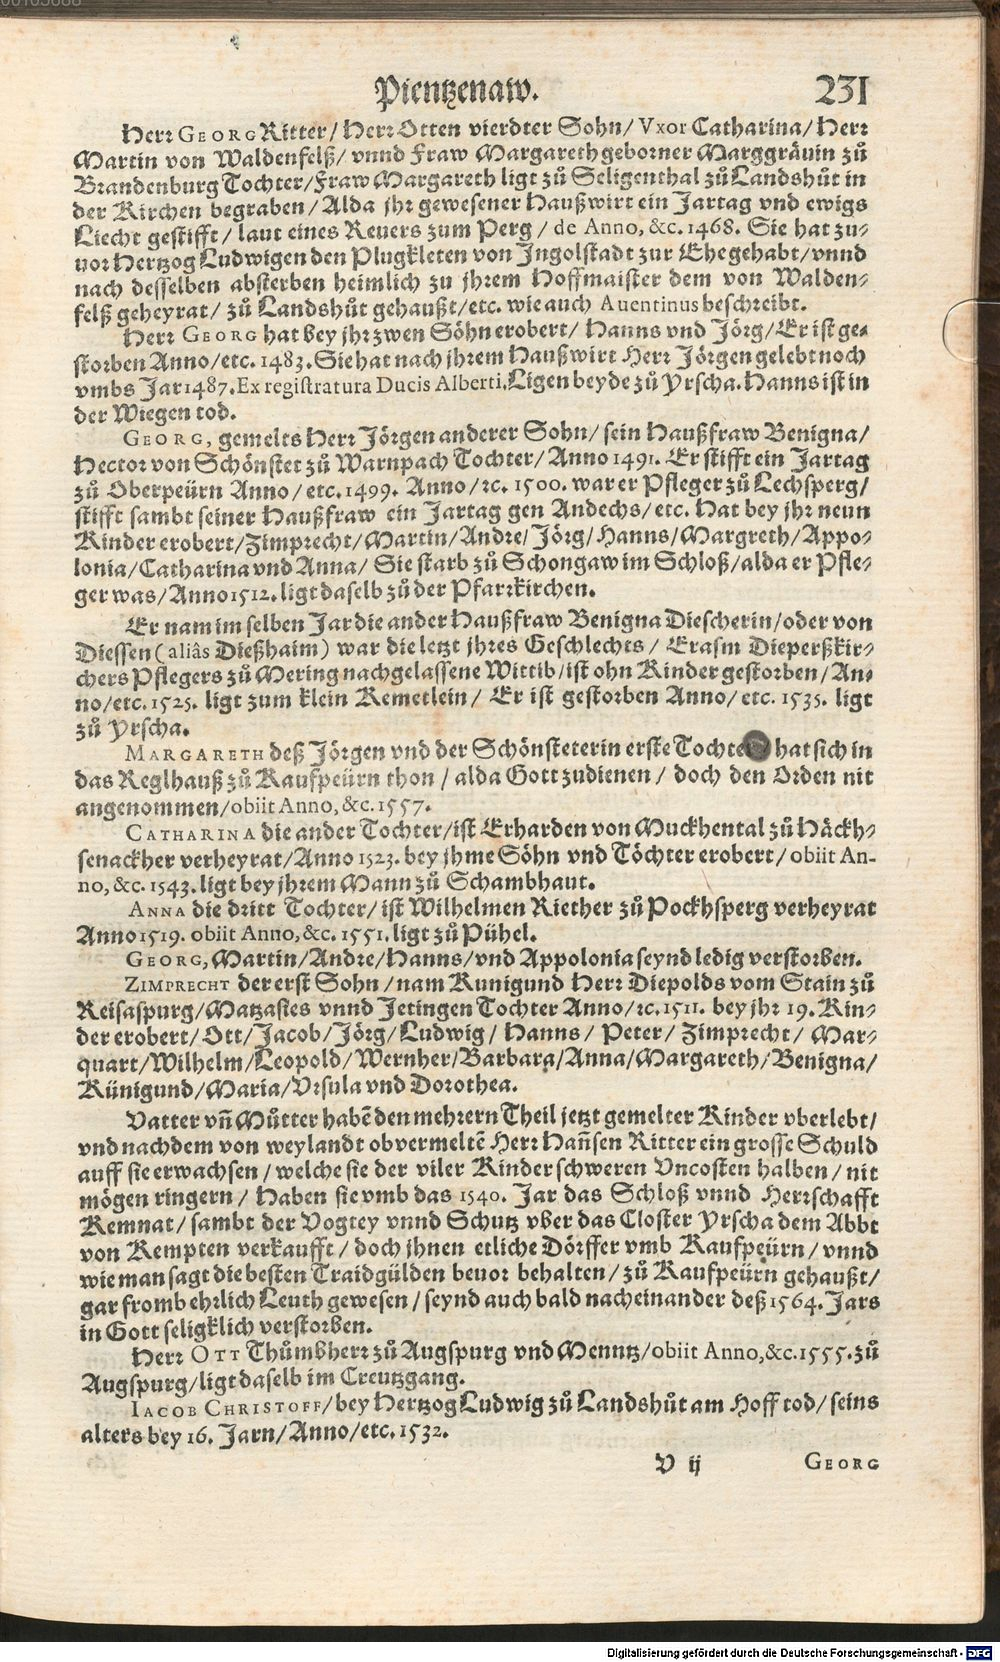 00103688
Pientzenaw. 231
Herr GEORG Ritter/ Herr Otten vierdter Sohn/ Vxor Catharina/ Herr
Martin von Waldenfelß/ vnnd Fraw Margareth geborner Marggrävin zů
Brandenburg Tochter/ Fraw Margareth ligt zů Seligenthal zů Landshůt in
der Kirchen begraben/ Alda jhr gewesener Haußwirt ein Jartag vnd ewigs
Liecht gestifft/ laut eines Revers zum Perg/ de Anno, &c. 1468. Sie hat zu-
uor Hertzog Ludwigen den Plugkleten von Ingolstadt zur Ehe gehabt/ vnnd
nach desselben absterben heimlich zu jhrem Hoffmaister dem von Walden-
felß geheyrat/ zů Landshůt gehaußt/ etc. wie auch Auentinus beschreibt.
Herr GEORG hat bey jhr zwen Söhn erobert/ Hanns vnd Jörg/ Er ist ge-
storben Anno/ etc. 1483. Sie hat nach jhrem Haußwirt Herr Jörgen gelebt noch
vmbs Jar 1487. Ex registratura Ducis Alberti, Ligen beyde zů Yrscha. Hanns ist in
der Wiegen tod.
GEORG, gemelts Herr Jörgen anderer Sohn/ sein Haußfraw Benigna/
Hector von Schönstet zů Warnpach Tochter/ Anno 1491. Er stifft ein Jartag
zů Oberpeürn Anno/ etc. 1499. Anno/ ꝛc. 1500. war er Pfleger zů Lechsperg/
stifft sambt seiner Haußfraw ein Jartag gen Andechs/ etc. Hat bey jhr neun
Kinder erobert/ Zimprecht/ Martin/ Andre/ Jörg/ Hanns/ Margreth/ Appo-
lonia/ Catharina vnd Anna/ Sie starb zů Schongaw im Schloß/ alda er Pfle-
ger was/ Anno 1512. ligt daselb zů der Pfarrkirchen.
Er nam im selben Jar die ander Haußfraw Benigna Diescherin/ oder von
Diessen (aliâs Dießhaim) war die letzt jhres Geschlechts/ Erasm Dieperßkir-
chers Pflegers zů Mering nachgelassene Wittib/ ist ohn Kinder gestorben/ An-
no/ etc. 1525. ligt zum klein Kemetlein/ Er ist gestorben Anno/ etc. 1535. ligt
zů Yrscha.
MARGARETH deß Jörgen vnd der Schönsteterin erste Tochter hat sich in
das Reglhauß zů Kaufpeürn thon/ alda Gott zudienen/ doch den Orden nit
angenommen/ obiit Anno, &c. 1557.
CATHARINA die ander Tochter/ ist Erharden von Muckhental zů Häckh-
senackher verheyrat/ Anno 1523. bey jhme Söhn vnd Töchter erobert/ obiit An-
no, &c. 1543. ligt bey jhrem Mann zů Schambhaut.
ANNA die dritt Tochter/ ist Wilhelmen Riether zů Pockhsperg verheyrat
Anno 1519. obiit Anno, &c. 1551. ligt zů Pühel.
GEORG, Martin/ Andre/ Hanns/ vnd Appolonia seynd ledig verstorben.
ZIMPRECHT der erst Sohn/ nam Kunigund Herr Diepolds vom Stain zů
Reisaspurg/ Matzasies vnnd Jetingen Tochter Anno/ ꝛc. 1511. bey jhr 19. Kin-
der erobert/ Ott/ Jacob/ Jörg/ Ludwig/ Hanns/ Peter/ Zimprecht/ Mar-
quart/ Wilhelm/ Leopold/ Wernher/ Barbara/ Anna/ Margareth/ Benigna/
Künigund/ Maria/ Vrsula vnd Dorothea.
Vatter vñ Můtter habẽ den mehrern Theil jetzt gemelter Kinder vberlebt/
vnd nachdem von weylandt obvermeltẽ Herr Hañsen Ritter ein grosse Schuld
auff sie erwachsen/ welche sie der viler Kinder schweren Vncosten halben/ nit
mögen ringern/ Haben sie vmb das 1540. Jar das Schloß vnnd Herrschafft
Kemnat/ sambt der Vogtey vnnd Schutz vber das Closter Yrscha dem Abbt
von Kempten verkaufft/ doch jhnen etliche Dörffer vmb Kaufpeürn/ vnnd
wie man sagt die besten Traidgülden beuor behalten/ zů Kaufpeürn gehaußt/
gar fromb ehrlich Leuth gewesen/ seynd auch bald nacheinander deß 1564. Jars
in Gott seligklich verstorben.
Herr OTT Thůmbherr zů Augspurg vnd Menntz/ obiit Anno, &c. 1555. zů
Augspurg/ ligt daselb im Creutzgang.
IACOB CHRISTOFF/ bey Hertzog Ludwig zů Landshůt am Hoff tod/ seins
alters bey 16. Jarn/ Anno/ etc. 1532.
V ij GEORG
Digitalisierung gefördert durch die Deutsche Forschungsgemeinschaft - DFG